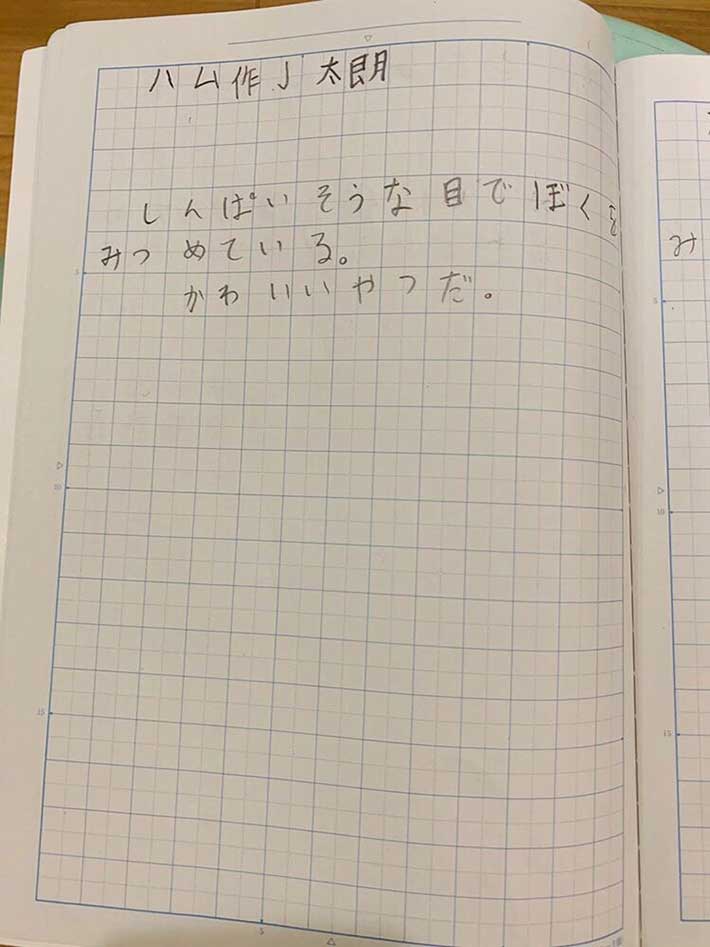 ハム作J太朗
しんぱいそうな目でぼくを
みつめている。
かわいいやつだ。
み
5
10
15
5
5
10
15